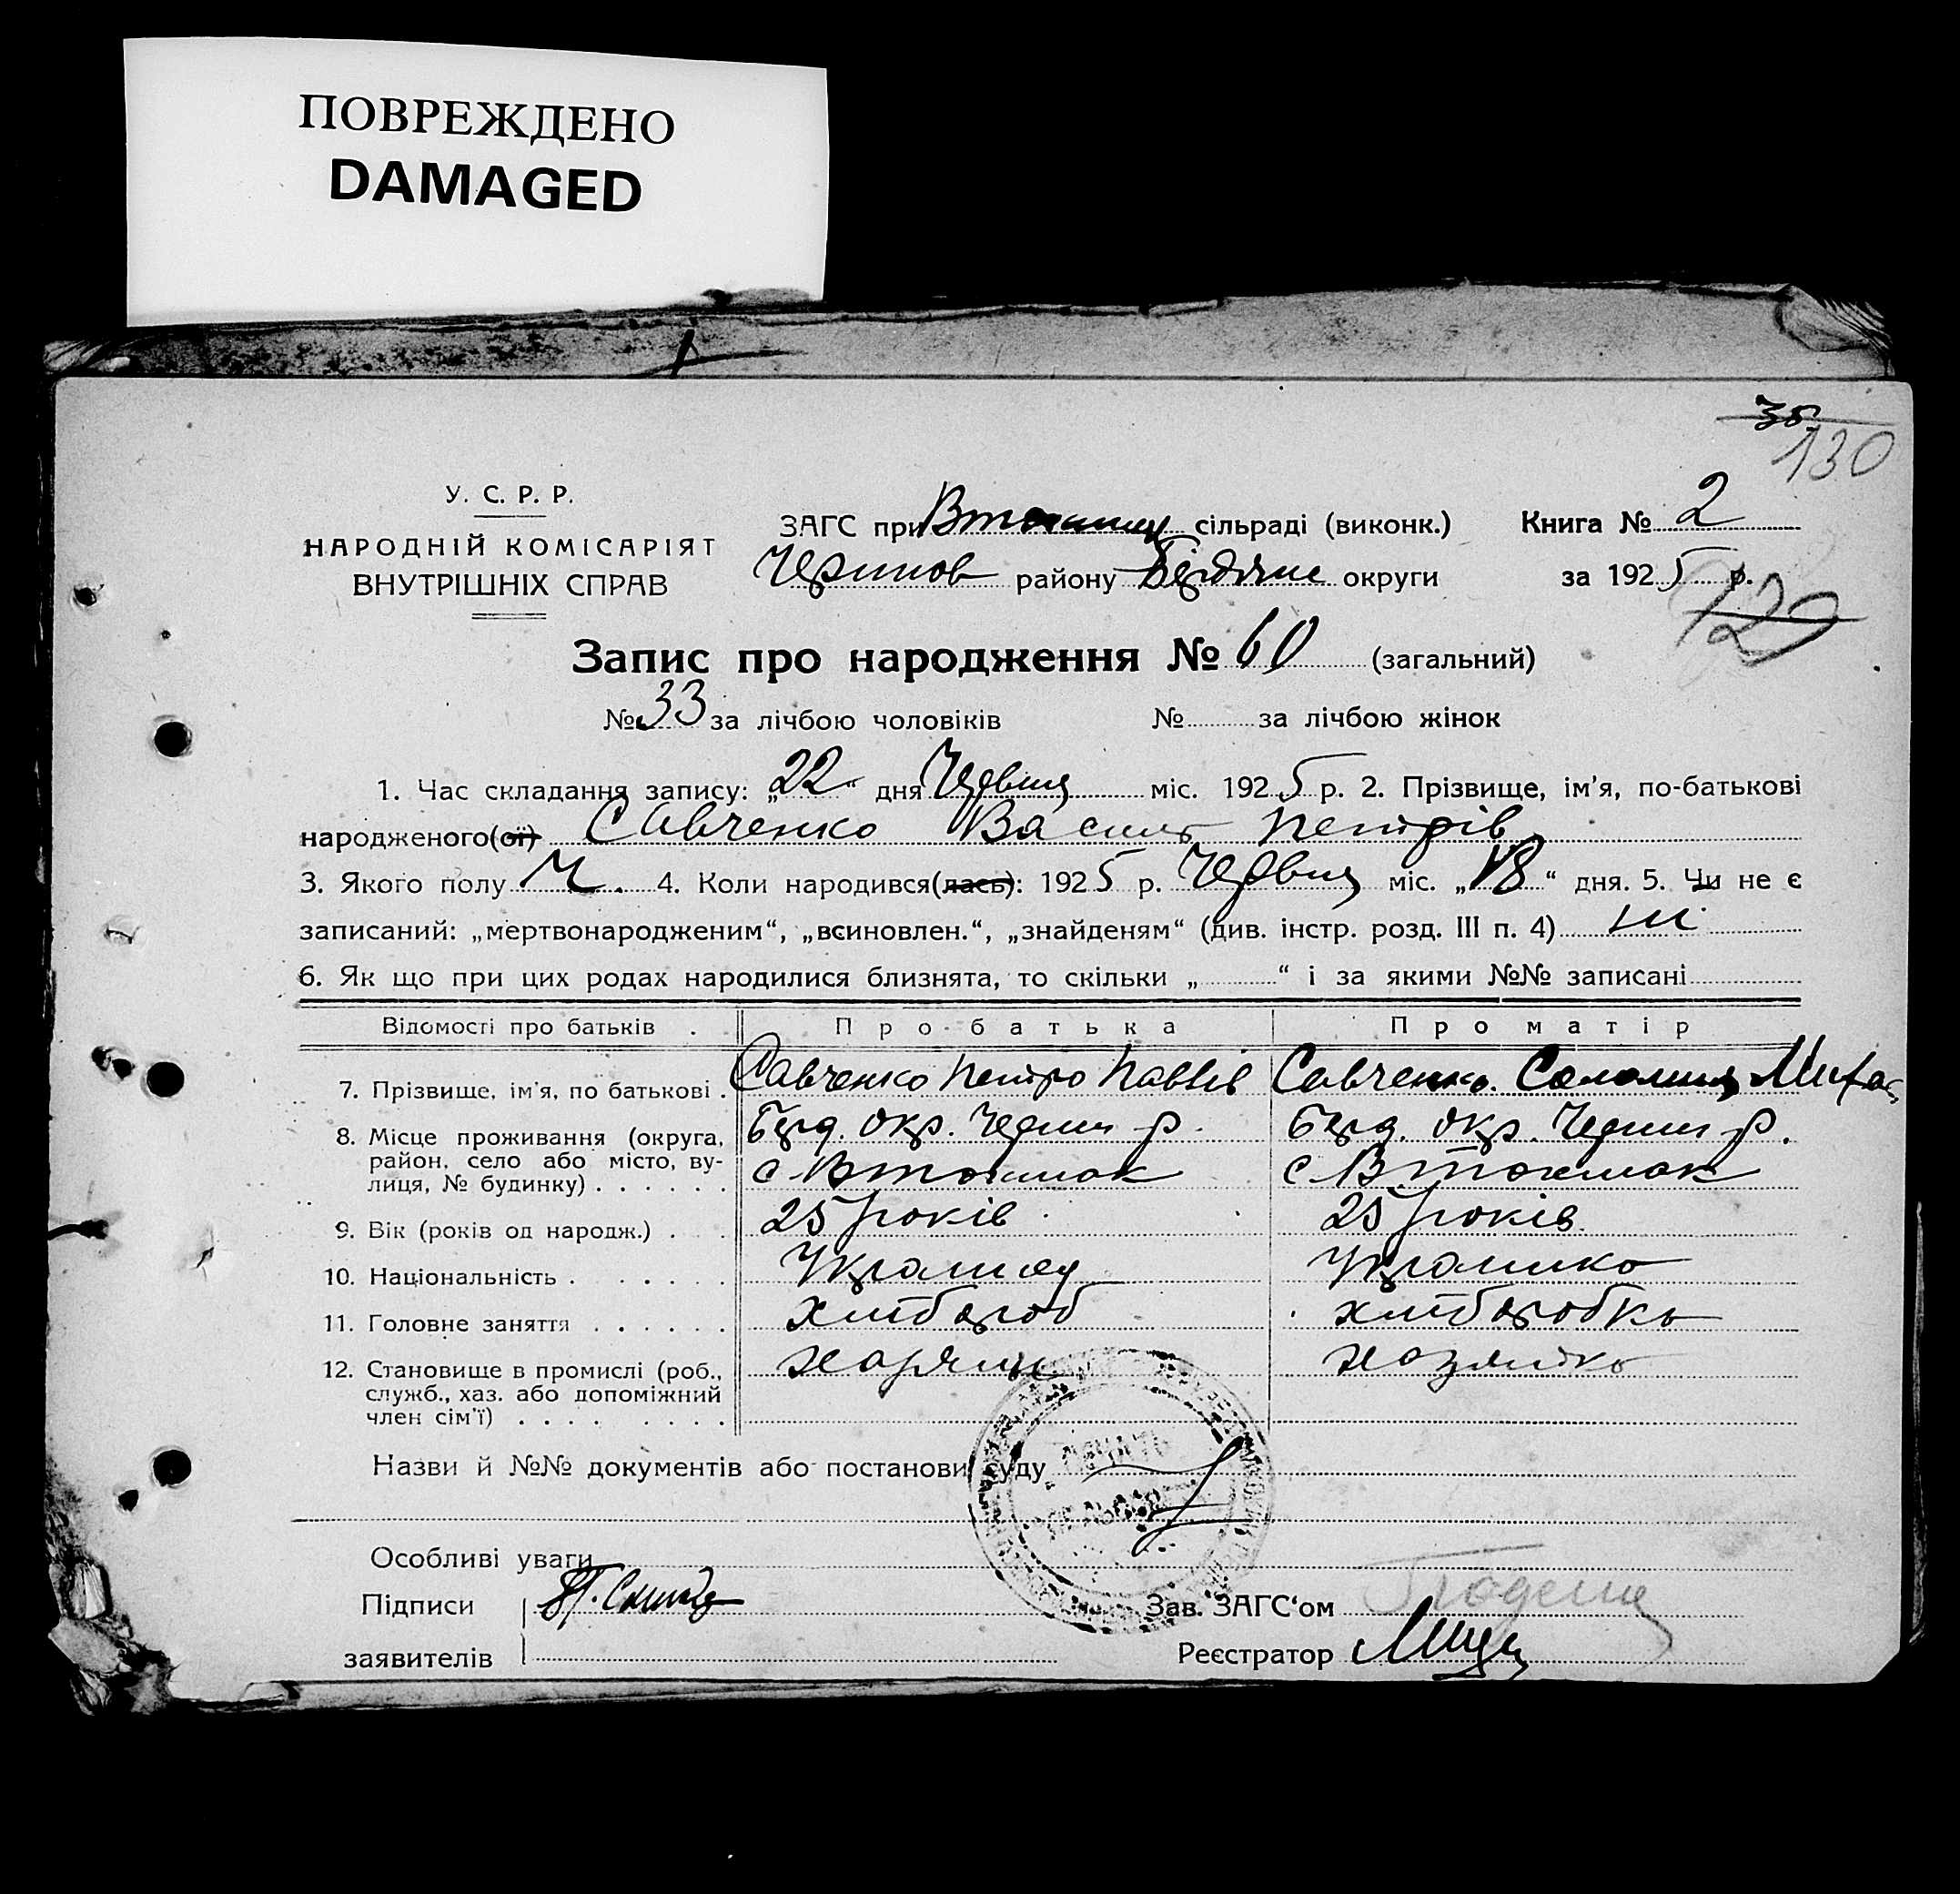 ПОВРЕЖДЕНО
DAMAGED
35
130
У. С. Р. Р.
НАРОДНІЙ КОМІСАРІЯТ
ВНУТРІШНІХ СПРАВ
ЗАГС при сільраді (виконк.) Книга № 2
району округи за 1925 р.
129
Запис про народження № 60 (загальний)
№ 33 за лічбою чоловіків № за лічбою жінок
1. Час складання запису: „22“ дня Червня міс. 1925 р. 2. Прізвище, ім'я, по-батькові
народженого(ої) Савченко Василь Петрів
3. Якого полу Ч. 4. Коли народився(лась): 1925 р. Червня міс. „18“ дня. 5. Чи не є
записаний: „мертвонародженим“, „всиновлен.“, „знайденям“ (див. інстр. розд. III п. 4) ні
6. Як що при цих родах народилися близнята, то скільки „ “ і за якими №№ записані
Відомості про батьків Про батька Про матір
7. Прізвище, ім'я, по батькові Савченко Петро Павлів Савченко Соломия Михай
8. Місце проживання (округа, Берд. окр. Черниг р. Берд. окр. Черниг р.
район, село або місто, ву- с Втокмак с Втокмак
лиця, № будинку)
9. Вік (років од народж.) 25 років 25 років
10. Національність Українец Українка
11. Головне заняття хлібороб хліборобка
12. Становище в промислі (роб., хазяин хазяйка
служб., хаз. або допоміжний
член сім'ї)
Назви й №№ документів або постанови суду
Особливі уваги
Підписи
заявителів
Зав. ЗАГС‘ом
Реєстратор